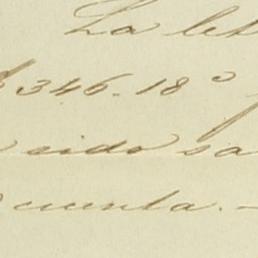 La let
$ 346.18º
sido sa
cuenta. —